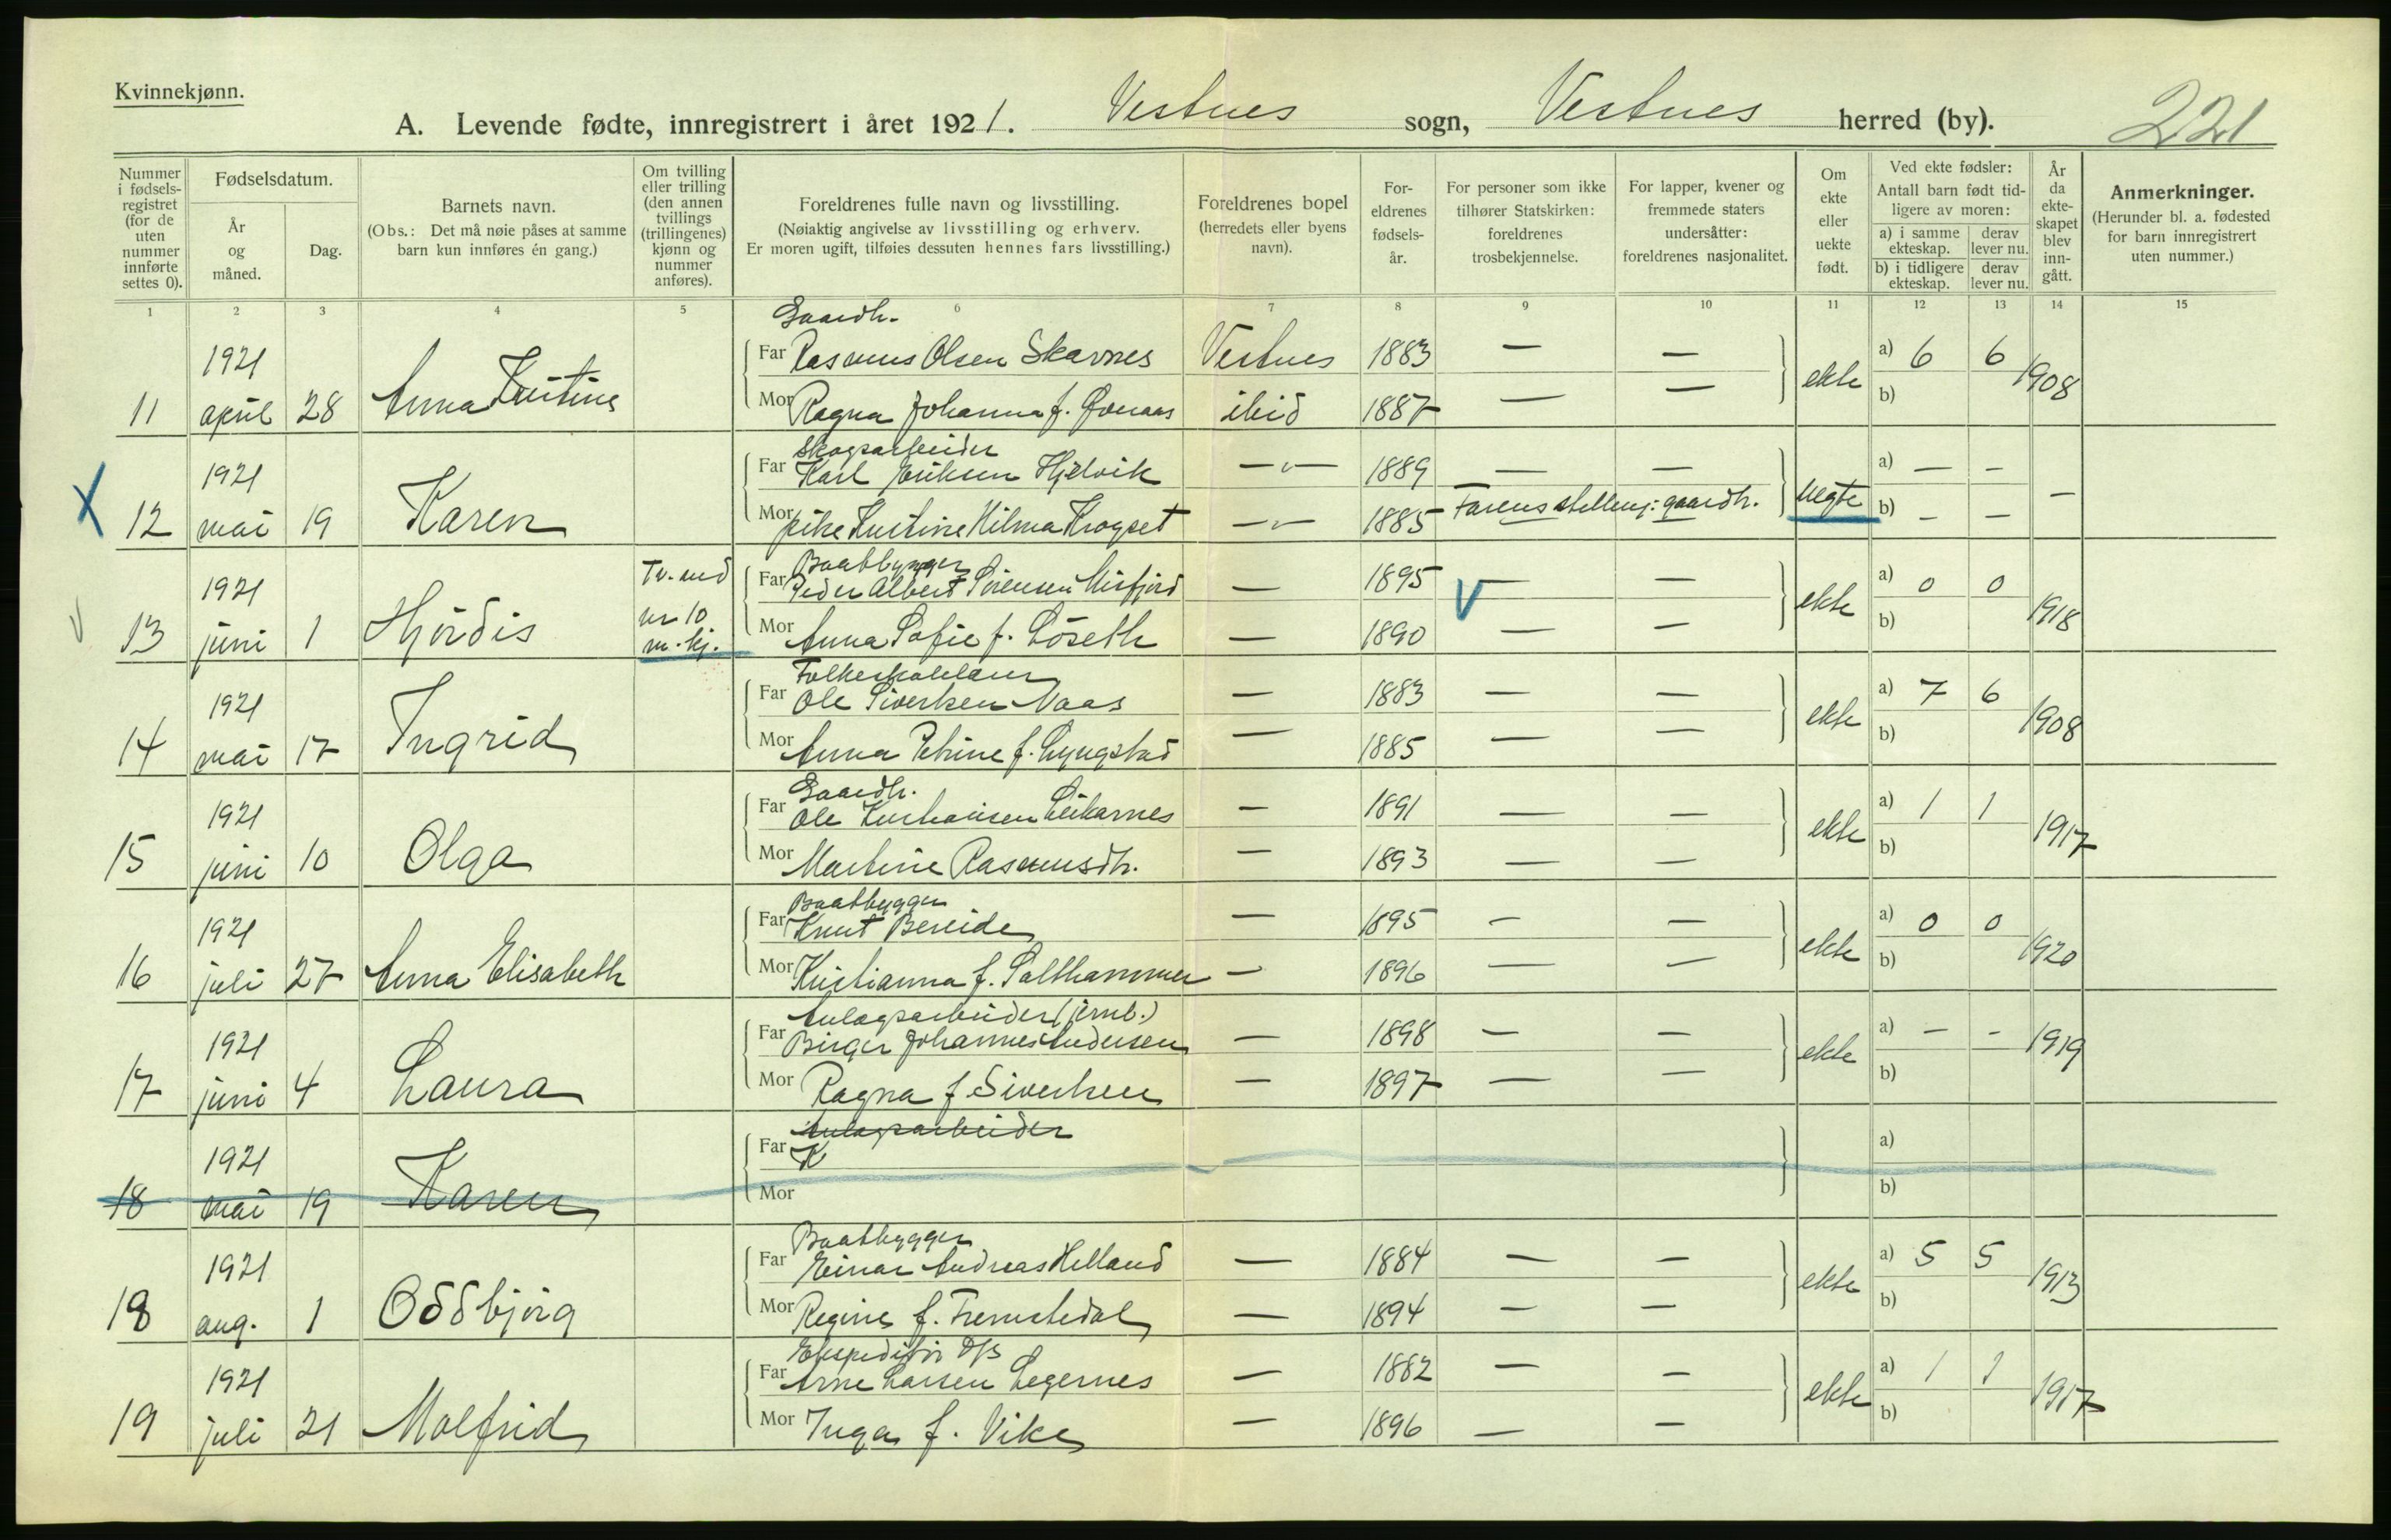 Kvinnekjønn.
A. Levende fødte, innregistrert i året 1921. Vestnes sogn, Vestnes herred (by). 221
Nummer i fødsels-registret (for de uten nummer innførte settes 0).
Fødselsdatum.
År og måned.
Dag.
Barnets navn.
(Obs.: Det må nøie påses at samme barn kun innføres én gang.)
Om tvilling eller trilling (den annen tvillings (trillingenes) kjønn og nummer anføres).
Foreldrenes fulle navn og livsstilling.
(Nøiaktig angivelse av livsstilling og erhverv.
Er moren ugift, tilføies dessuten hennes fars livsstilling.)
Foreldrenes bopel (herredets eller byens navn).
For-eldrenes fødsels-år.
For personer som ikke tilhører Statskirken: foreldrenes trosbekjennelse.
For lapper, kvener og fremmede staters undersåtter: foreldrenes nasjonalitet.
Om ekte eller uekte født.
Ved ekte fødsler:
Antall barn født tid-ligere av moren:
a) i samme ekteskap. derav lever nu.
b) i tidligere ekteskap. derav lever nu.
År da ekte-skapet blev inn-gått.
Anmerkninger.
(Herunder bl. a. fødested for barn innregistrert uten nummer.)
1 2 3 4 5 6 7 8 9 10 11 12 13 14 15
Gaardbr.
1921 Far Rasmus Olsen Skarnes Vestnes 1883 — — a) 6 6
11 april 28 Anna Kristine Mor Ragna Johanna f. ibid 1887 — — ekte b) 1908
Skogsarbeider
1921 Far Karl Eriksen Hjelvik —"— 1889 — — a) — —
X 12 mai 19 Karen Mor pike Kristine Hilma Krogset —"— 1885 Farens stilling: gaardbr. uegte b) — — —
Baatbygger
1921 Tv. med Far Peder Albert Sørensen Misfjord — 1895 V — — a) 0 0
V 13 juni 1 Hjördis nr 10 m.kj. Mor Anna Sofie f. Löseth — 1890 — — ekte b) 1918
Folkeskolelærer
1921 Far Ole Sivertsen Naas — 1883 — — a) 7 6
14 mai 17 Ingrid Mor Anna Petrine f. Lyngstad — 1885 — — ekte b) 1908
Gaardbr.
1921 Far Ole Kristiansen Leikarnes — 1891 — — a) 1 1
15 juni 10 Olga Mor Martine Rasmusdtr. — 1893 — — ekte b) 1917
Baatbygger
1921 Far Knut Bereide — 1895 — — a) 0 0
16 juli 27 Anna Elisabeth Mor Kristianna f. Salthammer — 1896 — — ekte b) 1920
Anlægsarbeider (jernb.)
1921 Far Birger Johannes Andersen — 1898 — — a) — — 1919
17 juni 4 Laura Mor Ragna f. Sivertsen — 1897 — — ekte b)
Anlægsarbeider
1921 Far K a)
18 mai 19 Karen Mor b)
Baatbygger
1921 Far Einar Andreas Helland — 1884 — — a) 5 5
18 aug. 1 Oddbjörg Mor Regine f. Fremstedal — 1894 — — ekte b) 1913
Ekspeditör D/S
1921 Far Arne Larsen Legernes — 1882 — — a) 1 1
19 juli 21 Molfrid Mor Inga f. Vike — 1896 — — ekte b) 1917